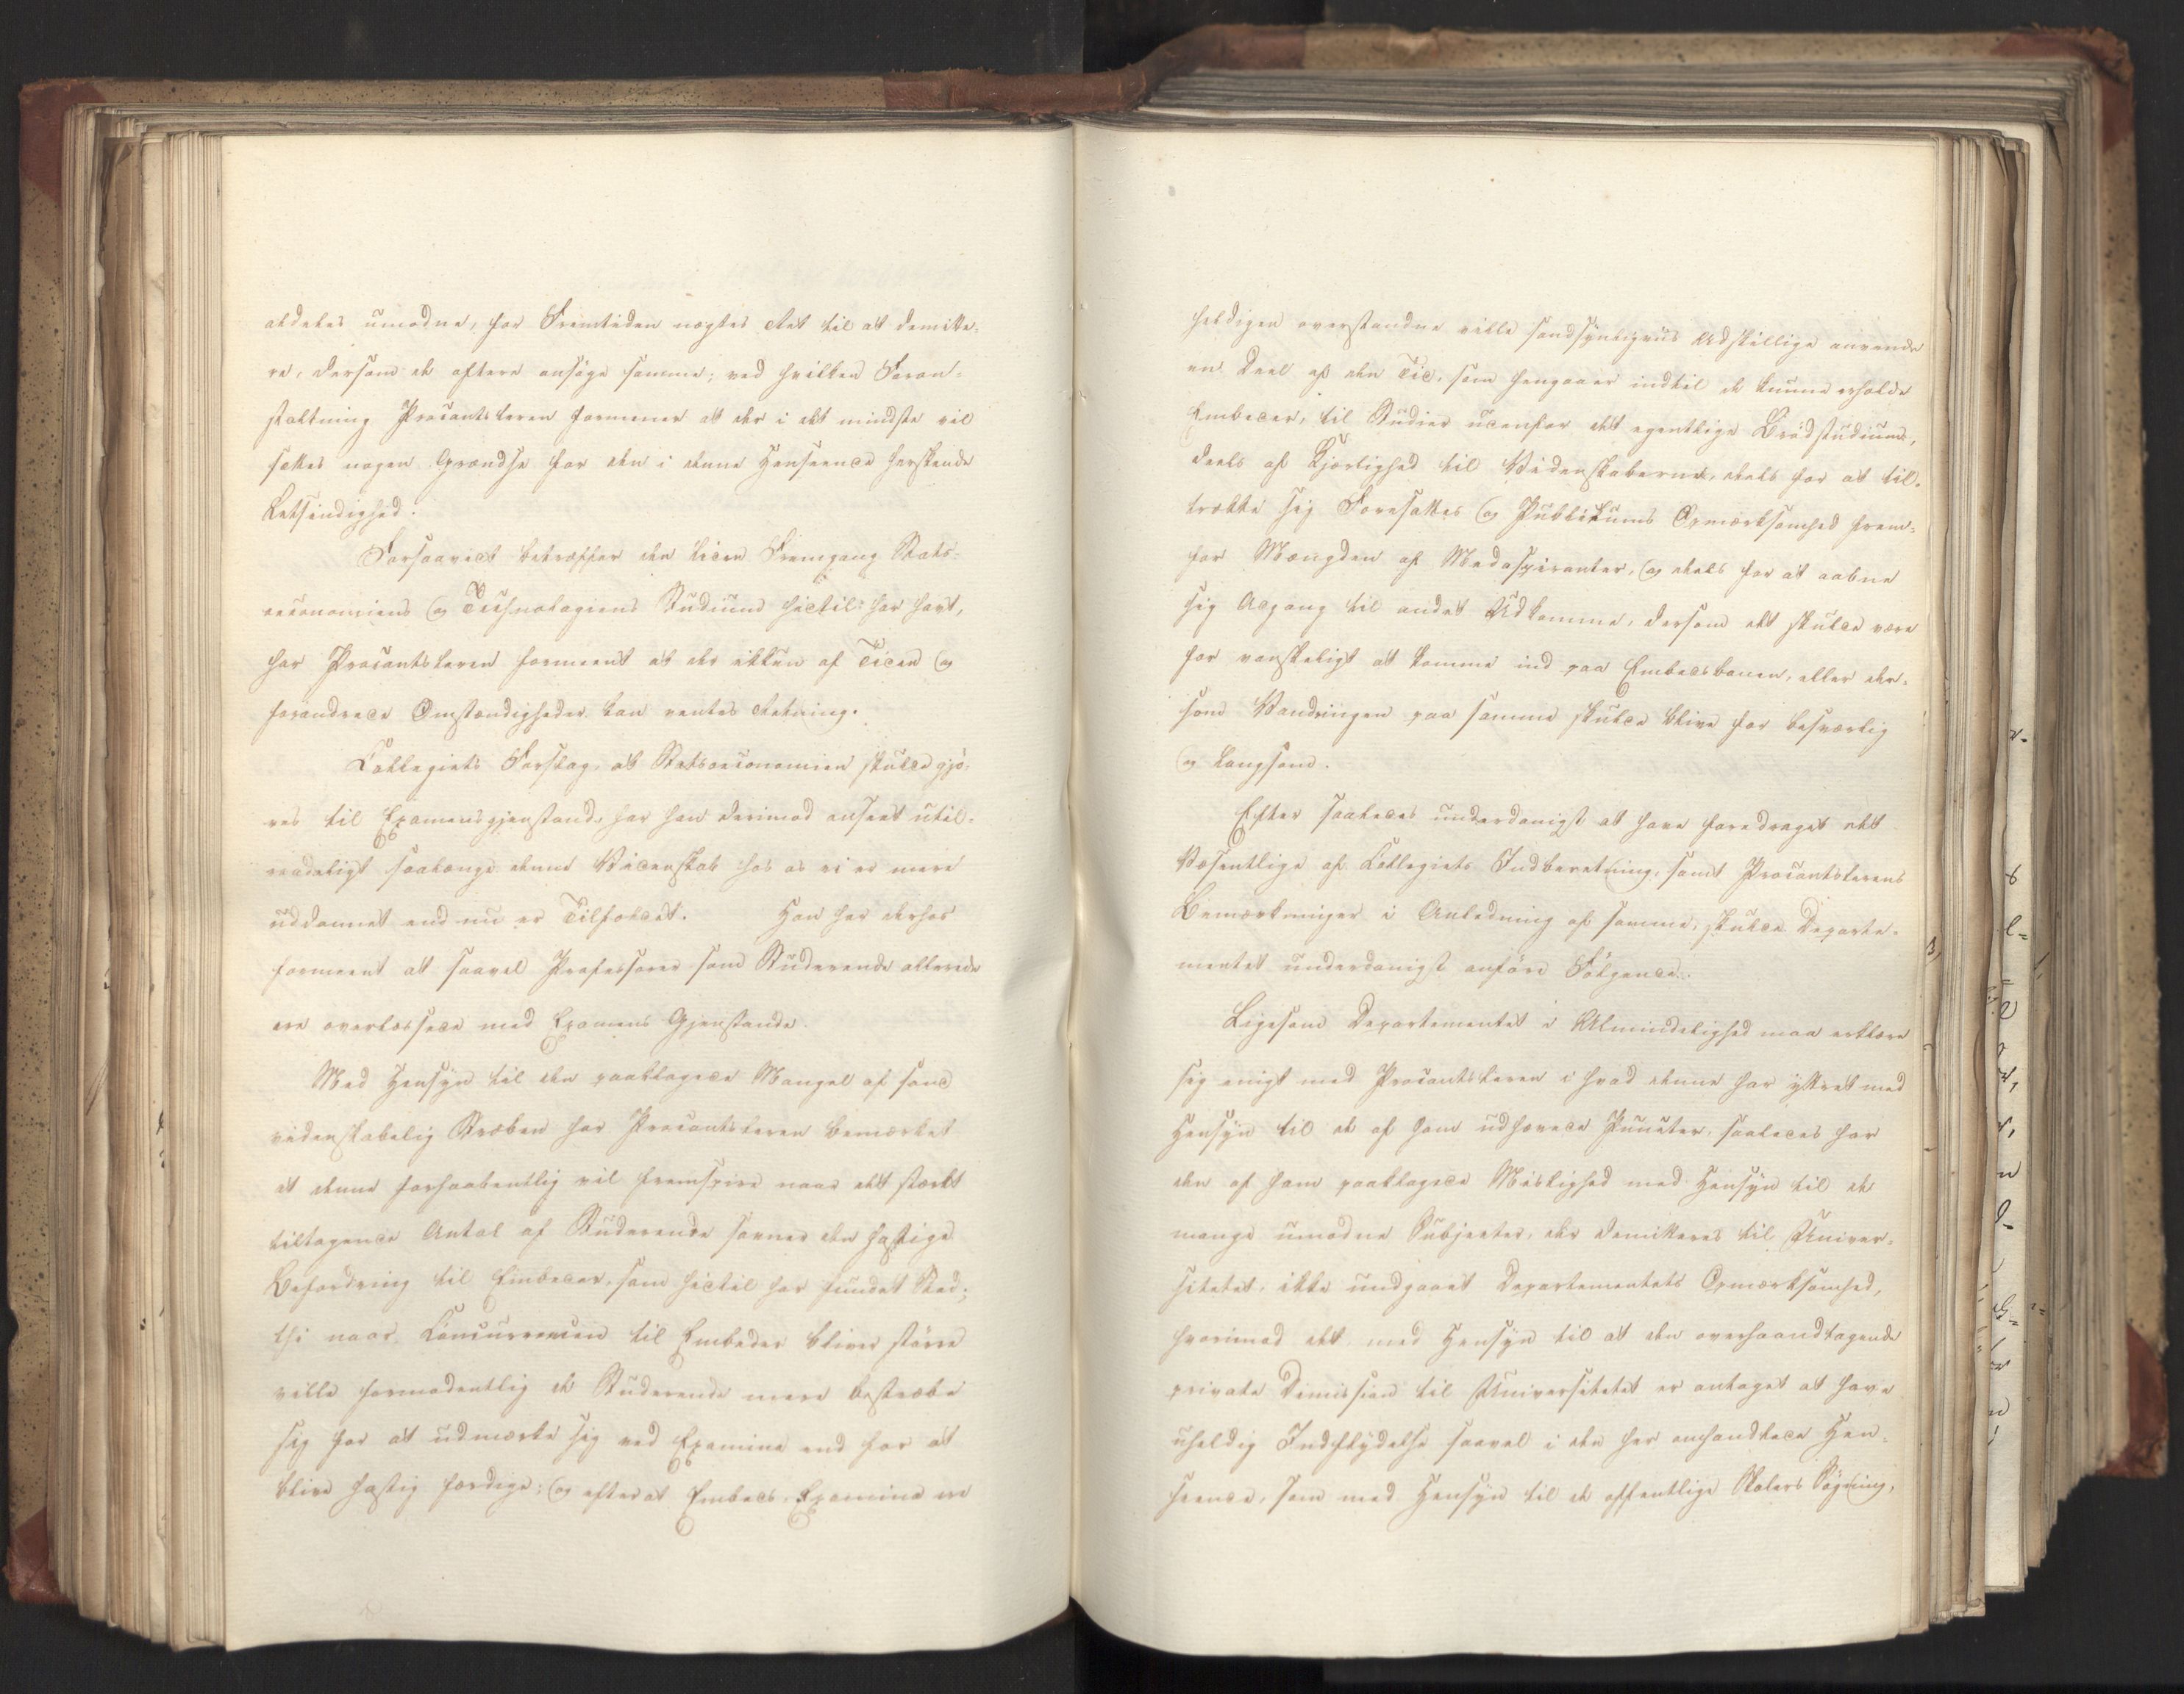 aldeles umodne, for Fremtiden nægtes Ret til at demitte-
re, dersom de oftere ansöge samme; ved hvilken Foran-
staltning Procantsleren formener at der i det mindste vil
sættes nogen Grændse for den i denne Henseende herskende
Letsindighed.
Forsaavidt betræffer den liden Fremgang Stats-
oeconomiens og Technologiens Studium hidtil har havt,
har Procantsleren formeent at der ikkun af Tiden og
forandrede Omstændigheder kan ventes Retning.
Collegiets Forslag, at Statsoeconomien skulde gjö-
res til Examensgjenstand, har han derimod anseet util-
raadeligt saalænge denne Videnskab hos os ei er mere
uddannet end nu er Tilfældet. Han har derhos
formeent at saavel Professorer som Studerende allerede
ere overlæssede med Examens Gjenstande.
Med Hensyn til den paaklagede Mangel af sand
videnskabelig Stræben har Procantsleren bemærket
at denne forhaabentlig vil fremspire naar det stærkt
tiltagende Antal af Studerende savner den hastige
Befordring til Embeder, som hidtil har fundet Sted;
thi naar Concurrencen til Embeder bliver större
ville formodentlig de Studerende mere bestræbe
sig for at udmærke sig ved Examina end for at
blive hastig færdige; og efterat Embeds-Examina ere
heldigen overstandne ville sandsynligviis Adskillige anvende
en Deel af den Tid, som hengaaer indtil de kunne erholde
Embeder, til Studier udenfor det egentlige Brödstudium,
deels af Kjærlighed til Videnskaberne, deels for at til-
trække sig Foresattes og Publikums Opmærksomhed frem-
for Mængden af Medaspiranter, og deels for at aabne
sig Adgang til andet Udkomme, dersom det skulde være
for vanskeligt at komme ind paa Embedsbanen, eller der-
som Vandringen paa samme skulde blive for besværlig
og langsom.
Efter saaledes underdanigst at have foredraget det
Væsentlige af Collegiets Indberetning, samt Procantslerens
Bemærkninger i Anledning af samme, skulde Departe-
mentet underdanigst anföre Fölgende.
Ligesom Departementet i Almindelighed maa erklære
sig enigt med Procantsleren i hvad denne har yttret med
Hensyn til de af ham udhævede Puncter, saaledes har
den af ham paaklagede Mislighed med Hensyn til de
mange umodne Subjecter, der demitteres til Univer-
sitetet, ikke undgaaet Departementets Opmærksomhed,
hvorimod det med Hensyn til at den overhaandtagende
private Dimission til Universitetet er antaget at have
uheldig Indflydelse saavel i den her omhandlede Hen-
seende, som med Hensyn til de offentlige Skolers Sögning,